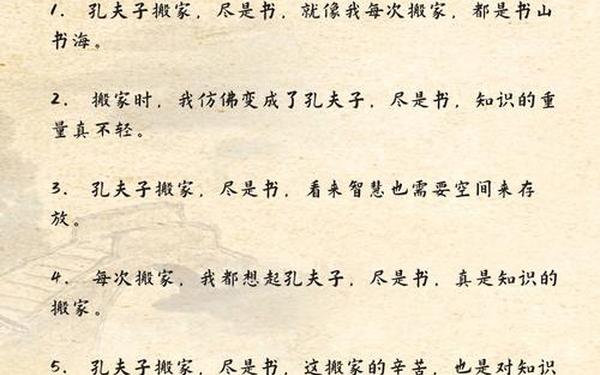 1. 孔夫子搬家，尽是书，就像我每次搬家，都是书山
书海。
2. 搬家时，我仿佛变成了孔夫子，尽是书，知识的重
量真不轻。
3. 孔夫子搬家，尽是书，看来智慧也需要空间来存
放。
4. 每次搬家，我都想起孔夫子，尽是书，真是知识的
搬家。
5. 孔夫子搬家，尽是书，这搬家的辛苦，也是对知识